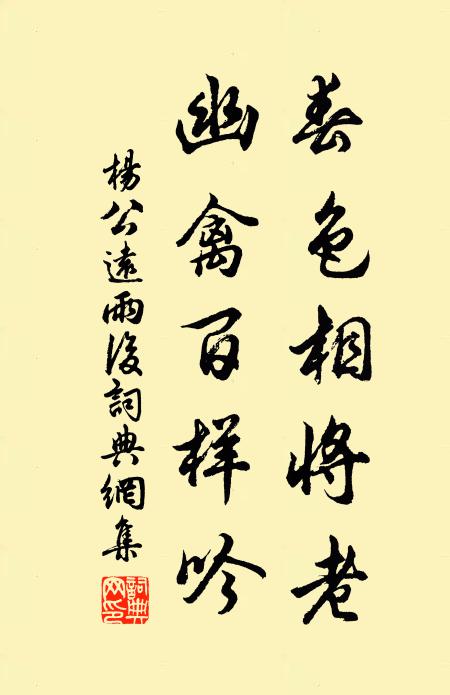 春色相将老
幽禽百样吟
楊公遠雨後詞典網集
詞典網印